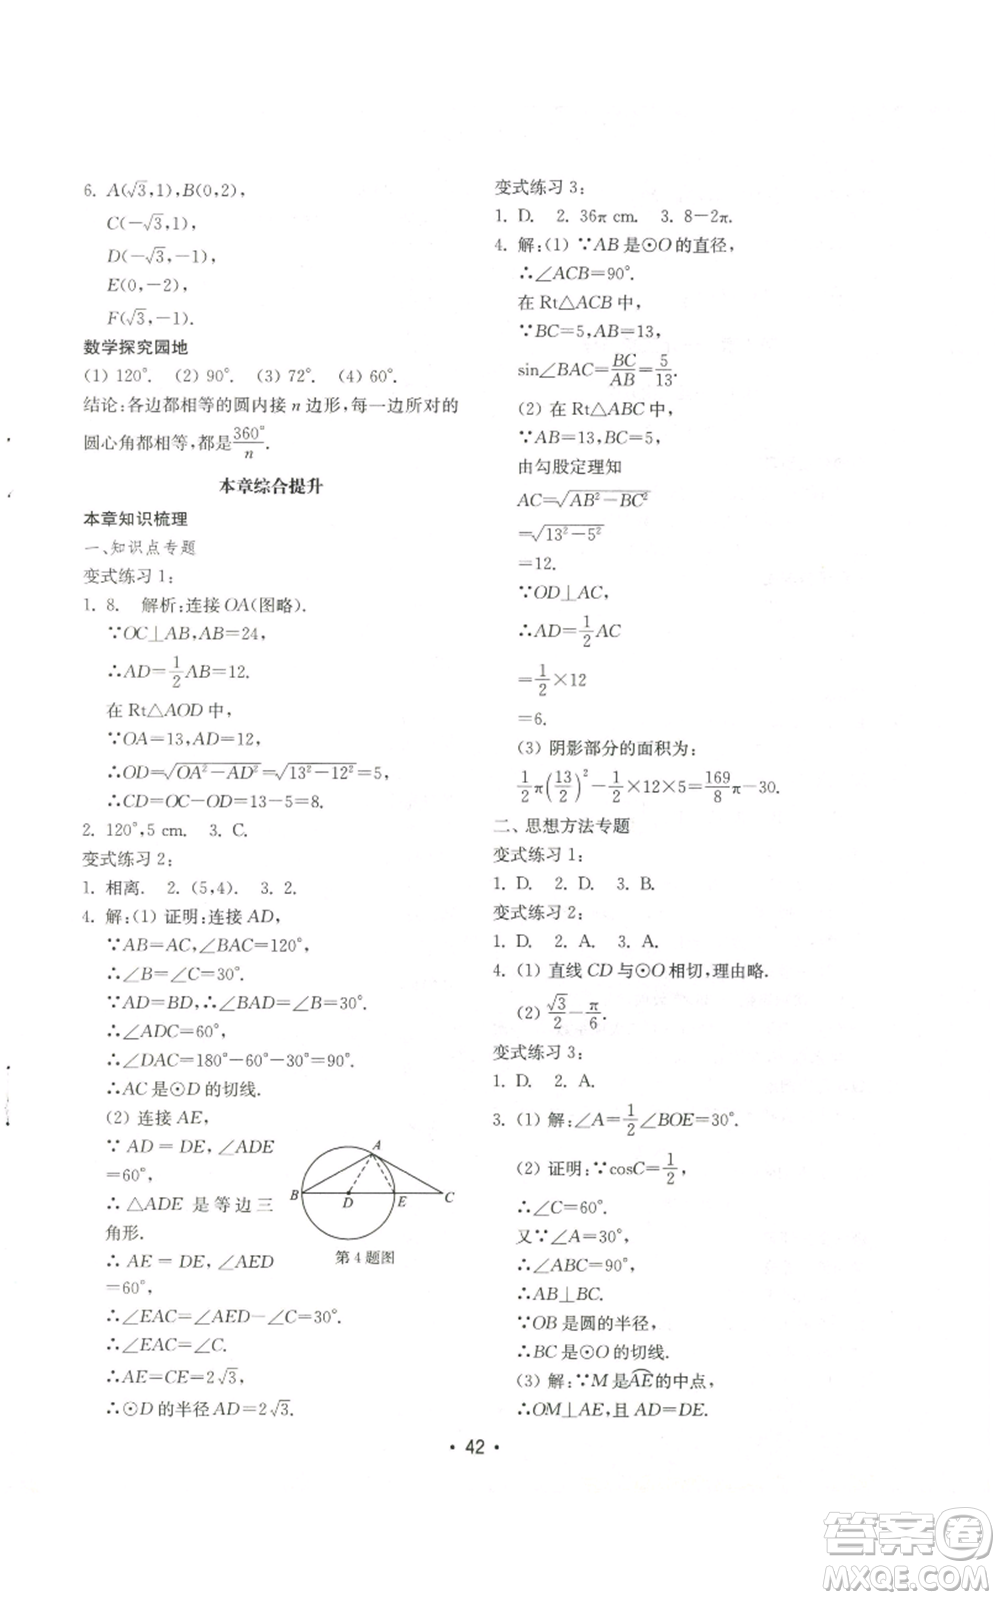 6. A(√3,1),B(0,2),
C(-√3,1),
D(-√3,-1),
E(0,-2),
F(√3,-1).
数学探究园地
(1) 120°. (2) 90°. (3) 72°. (4) 60°.
结论:各边都相等的圆内接 n 边形,每一边所对的
圆心角都相等,都是360°/n.
本章综合提升
本章知识梳理
一、知识点专题
变式练习 1:
1. 8. 解析:连接 OA(图略).
∵OC⊥AB,AB=24,
∴AD=1/2AB=12.
在 Rt△AOD 中,
∵OA=13,AD=12,
∴OD=√(OA²-AD²)=√(13²-12²)=5,
∴CD=OC-OD=13-5=8.
2. 120°,5 cm. 3. C.
变式练习 2:
1. 相离. 2. (5,4). 3. 2.
4. 解:(1) 证明:连接 AD,
∵AB=AC,∠BAC=120°,
∴∠B=∠C=30°.
∵AD=BD,∴∠BAD=∠B=30°.
∴∠ADC=60°,
∴∠DAC=180°-60°-30°=90°.
∴AC 是⊙D 的切线.
(2) 连接 AE,
∵ AD = DE, ∠ADE
=60°,
∴ △ADE 是等边三
角形.
∴ AE = DE, ∠AED
=60°,
∴∠EAC=∠AED-∠C=30°.
∴∠EAC=∠C.
∴AE=CE=2√3,
∴⊙D 的半径 AD=2√3.
A
B
D
E
C
第 4 题图
变式练习 3:
1. D. 2. 36π cm. 3. 8-2π.
4. 解:(1) ∵AB 是⊙O 的直径,
∴∠ACB=90°.
在 Rt△ACB 中,
∵BC=5,AB=13,
sin∠BAC=BC/AB=5/13.
(2) 在 Rt△ABC 中,
∵AB=13,BC=5,
由勾股定理知
AC=√(AB²-BC²)
=√(13²-5²)
=12.
∵OD⊥AC,
∴AD=1/2AC
=1/2×12
=6.
(3) 阴影部分的面积为:
1/2π(13/2)²-1/2×12×5=169/8π-30.
二、思想方法专题
变式练习 1:
1. D. 2. D. 3. B.
变式练习 2:
1. D. 2. A. 3. A.
4. (1) 直线 CD 与⊙O 相切,理由略.
(2) √3/2-π/6.
变式练习 3:
1. D. 2. A.
3. (1) 解:∠A=1/2∠BOE=30°.
(2) 证明:∵cosC=1/2,
∴∠C=60°.
又∵∠A=30°,
∴∠ABC=90°,
∴AB⊥BC.
∵OB 是圆的半径,
∴BC 是⊙O 的切线.
(3) 解:∵M 是AE的中点,
∴OM⊥AE,且 AD=DE.
• 42 •
答案卷
MXQE.COM